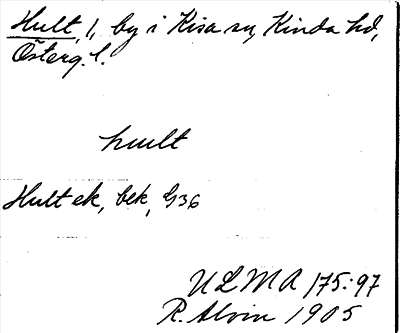 Hult, l, by i Kisa sn, Kinda hd,
Österg. l.
hult
Hult ek, bek, G36
ULMA 175:97
R. Alvin 1905